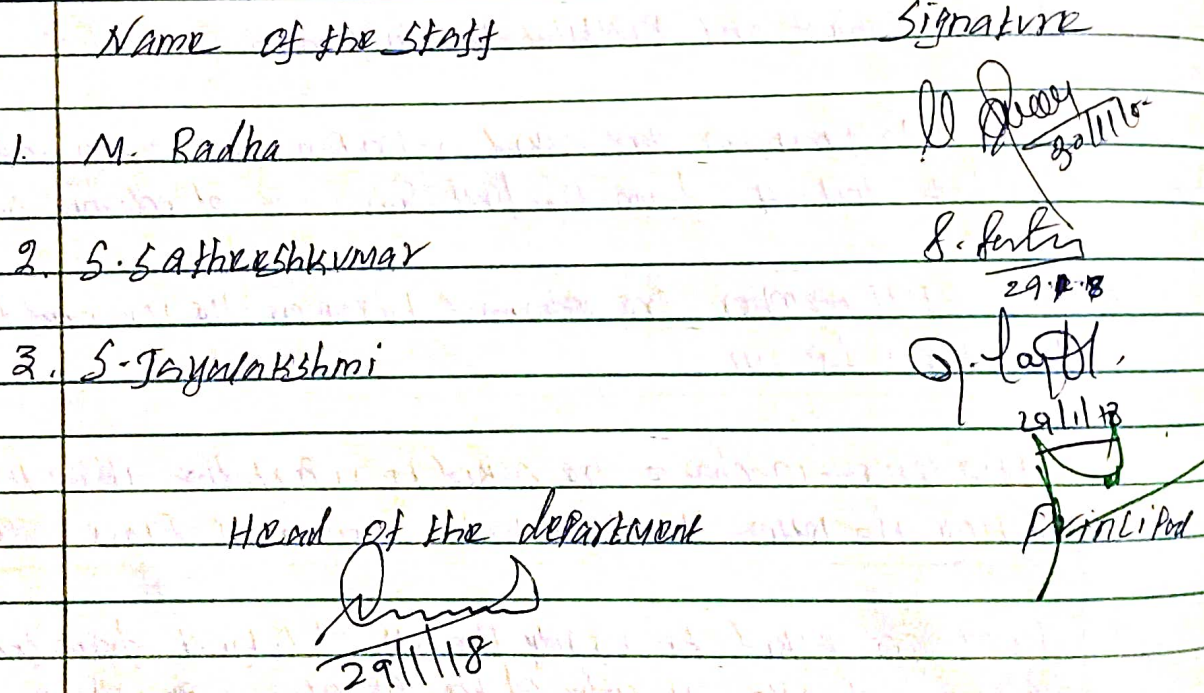 Name of the Staff Signature
1. M. Radha
30/1/18
2. S. Satheeshkumar
29.1.8
3. S. Jayalakshmi
29/1/18
Head of the department Principal
29/1/18